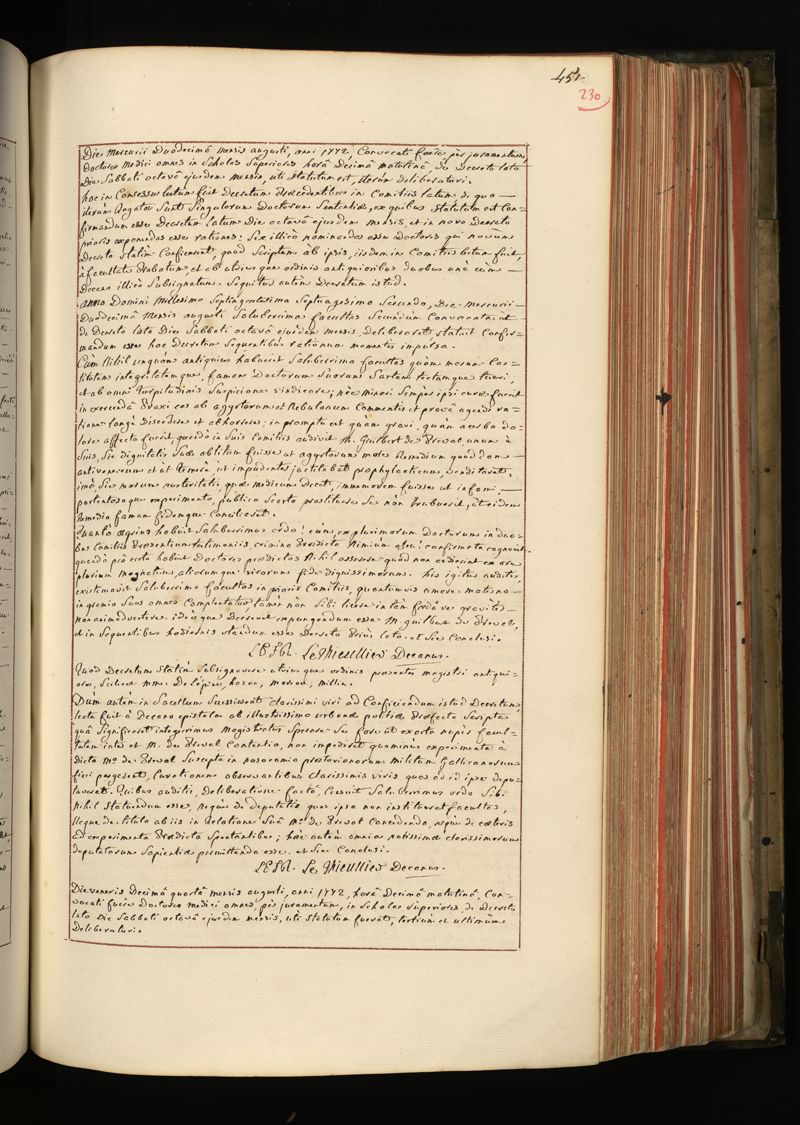 451.
230
Die Mercurii Duodecimâ mensis augusti, anni 1772, Convocati fuere per juramentum,
Doctores Medici omnes in Scholas Superiores horâ Decimâ matutinâ, de Decreto lato
Die Sabbati octavâ ejusdem mensis, uti Statutum est, iterùm deliberaturi.
hoc in Consessu lectum fuit Decretum Praecedentibus in Comitiis latum de quo —
iterùm Rogatae Sunt Singulorum Doctorum Sententiae, ex quibus Statutum est Con=
firmandum esse Decretum latum Die octavâ ejusdem mensis, et in novo Decreto
prioris exponendas esse rationes: Sex illicò nominandos esse Doctores qui novum
Decretum Statim Conficerent, quod Scriptum ab ipsis, iisdem in Comitiis lectum fuit,
à facultate Probatum, et ab utriusque ordinis antiquioribus duobus unà cùm —
Decano illicò Subsignatum. Sequitur autem Decretum istud.
anno Domini Millesimo Septingentesimo Septuagesimo Secundo, Die Mercurii —
Duodecimâ Mensis augusti Saluberrima facultas Secundùm Convocata ut
de Decreto lato Die Sabbati octavâ ejusdem mensis, Deliberaret, Statuit Confir=
mandum esse hoc Decretum Sequentibus rationum momentis impulsa.
Cùm Nihil unquàm antiquius habuerit Saluberrima facultas quàm morum Cas=
titatem integritatemque, famam Doctorum Suorum Sartam tectamque tueri,
et ab omni Turpitudinis Suspicione vindicare; nec minori Semper ipsi curae fuerit
in exercendâ Praxi eos ab agyrtarum et Nebulonum Commentis et pravâ agendi ra=
tione longè Discedere et abhorrere; in promptu est quàm gravi, quàm acerbo do=
lore affecta fuerit, quandò in Suis Comitiis audivit M. Guilbert de Préval, unum è
Suis, Sic dignitatis Suae oblitum fuisse ut agyrtarum more Remedium quoddam —
antivenereum et ut Temerè, et impudenter jactitabat prophylacticum, venditaret,
imò, Sic morum austeritatis, quae medicum decet, immemorem fuisse ut infami, —
portentosoque experimento, publico Scorto prostituere Se non Erubuerit, ut eidem
Remedio famam fidemque Conciliaret.
Quantò aegriùs habuit Saluberrimus ordo! cùm, ex plurimorum Doctorum in duo=
bus Comitiis Praesentium testimoniis, crimina Praedicta Nimium apud Confirmata cognovit,
quandò pro certo habuit Doctores praedictos Nihil asserere quod non audierint ex ore
plurium Magnatum, aliorumque virorum fide dignissimorum. his igitur auditis,
existimavit Saluberrima facultas in prioribus Comitiis, quantumvis amore materno —
in gremio Suos omnes Complectatur tamen non Sibi licere in tàm foedâ re graviter —
non animadvertere. ideòque Decrevit expungendum esse M. guilbert de Préval,
et in Sequentibus hodiernis Standum esse Decreto Priùs lato. et Sic Conclusi.
Le Thieullier Decanus.
Quod Decretum Statim Subsignavere utriusque ordinis praesentes magistri antiqui=
ores, Scilicet MM. De lépine, hazon, moreau, millin.
Dùm autem in Sacellum Successissent clarissimi viri ad Conficiendum istud Decretum,
lecta fuit à Decano epistola ab illustrissimo urbanae politiae Praefecto Scripta
quâ Significaret integerrimus Magistratus Sperare Se fore ut exorta nuper facul=
tatem inter et M. de Préval Contentio, non impediret quominus experimenta à
dicto Mo. de Préval Suscepta in nosocomio praetorianorum militum Gallicanorum
fieri pergerent, Curationem observantibus clarissimis viris quos ad id ipse depu=
taverat. Quibus auditis, Deliberatione factâ, Censuit Saluberrimus ordo Sibi
nihil Statuendum esse, neque de deputatis quos ipsa non instituerat facultas,
Neque de titulo ab iis in Relatione Suâ Mo. de Préval Concedendo, neque de caeteris
Ad experimenta Praedicta Spectantibus; haec autem omnia notissimae clarissimorum
deputatorum Sapientiae permittenda esse. et Sic Conclusi.
Le Thieullier Decanus.
Die veneris Decimâ quartâ mensis augusti, anni 1772, horâ Decimâ matutinâ, Con=
vocati fuere Doctores medici omnes, per juramentum, in Scholas Superiores, de Decreto
lato Die Sabbati octavâ ejusdem mensis, uti Statutum fuerat, tertiùm et ultimùm
Deliberaturi.